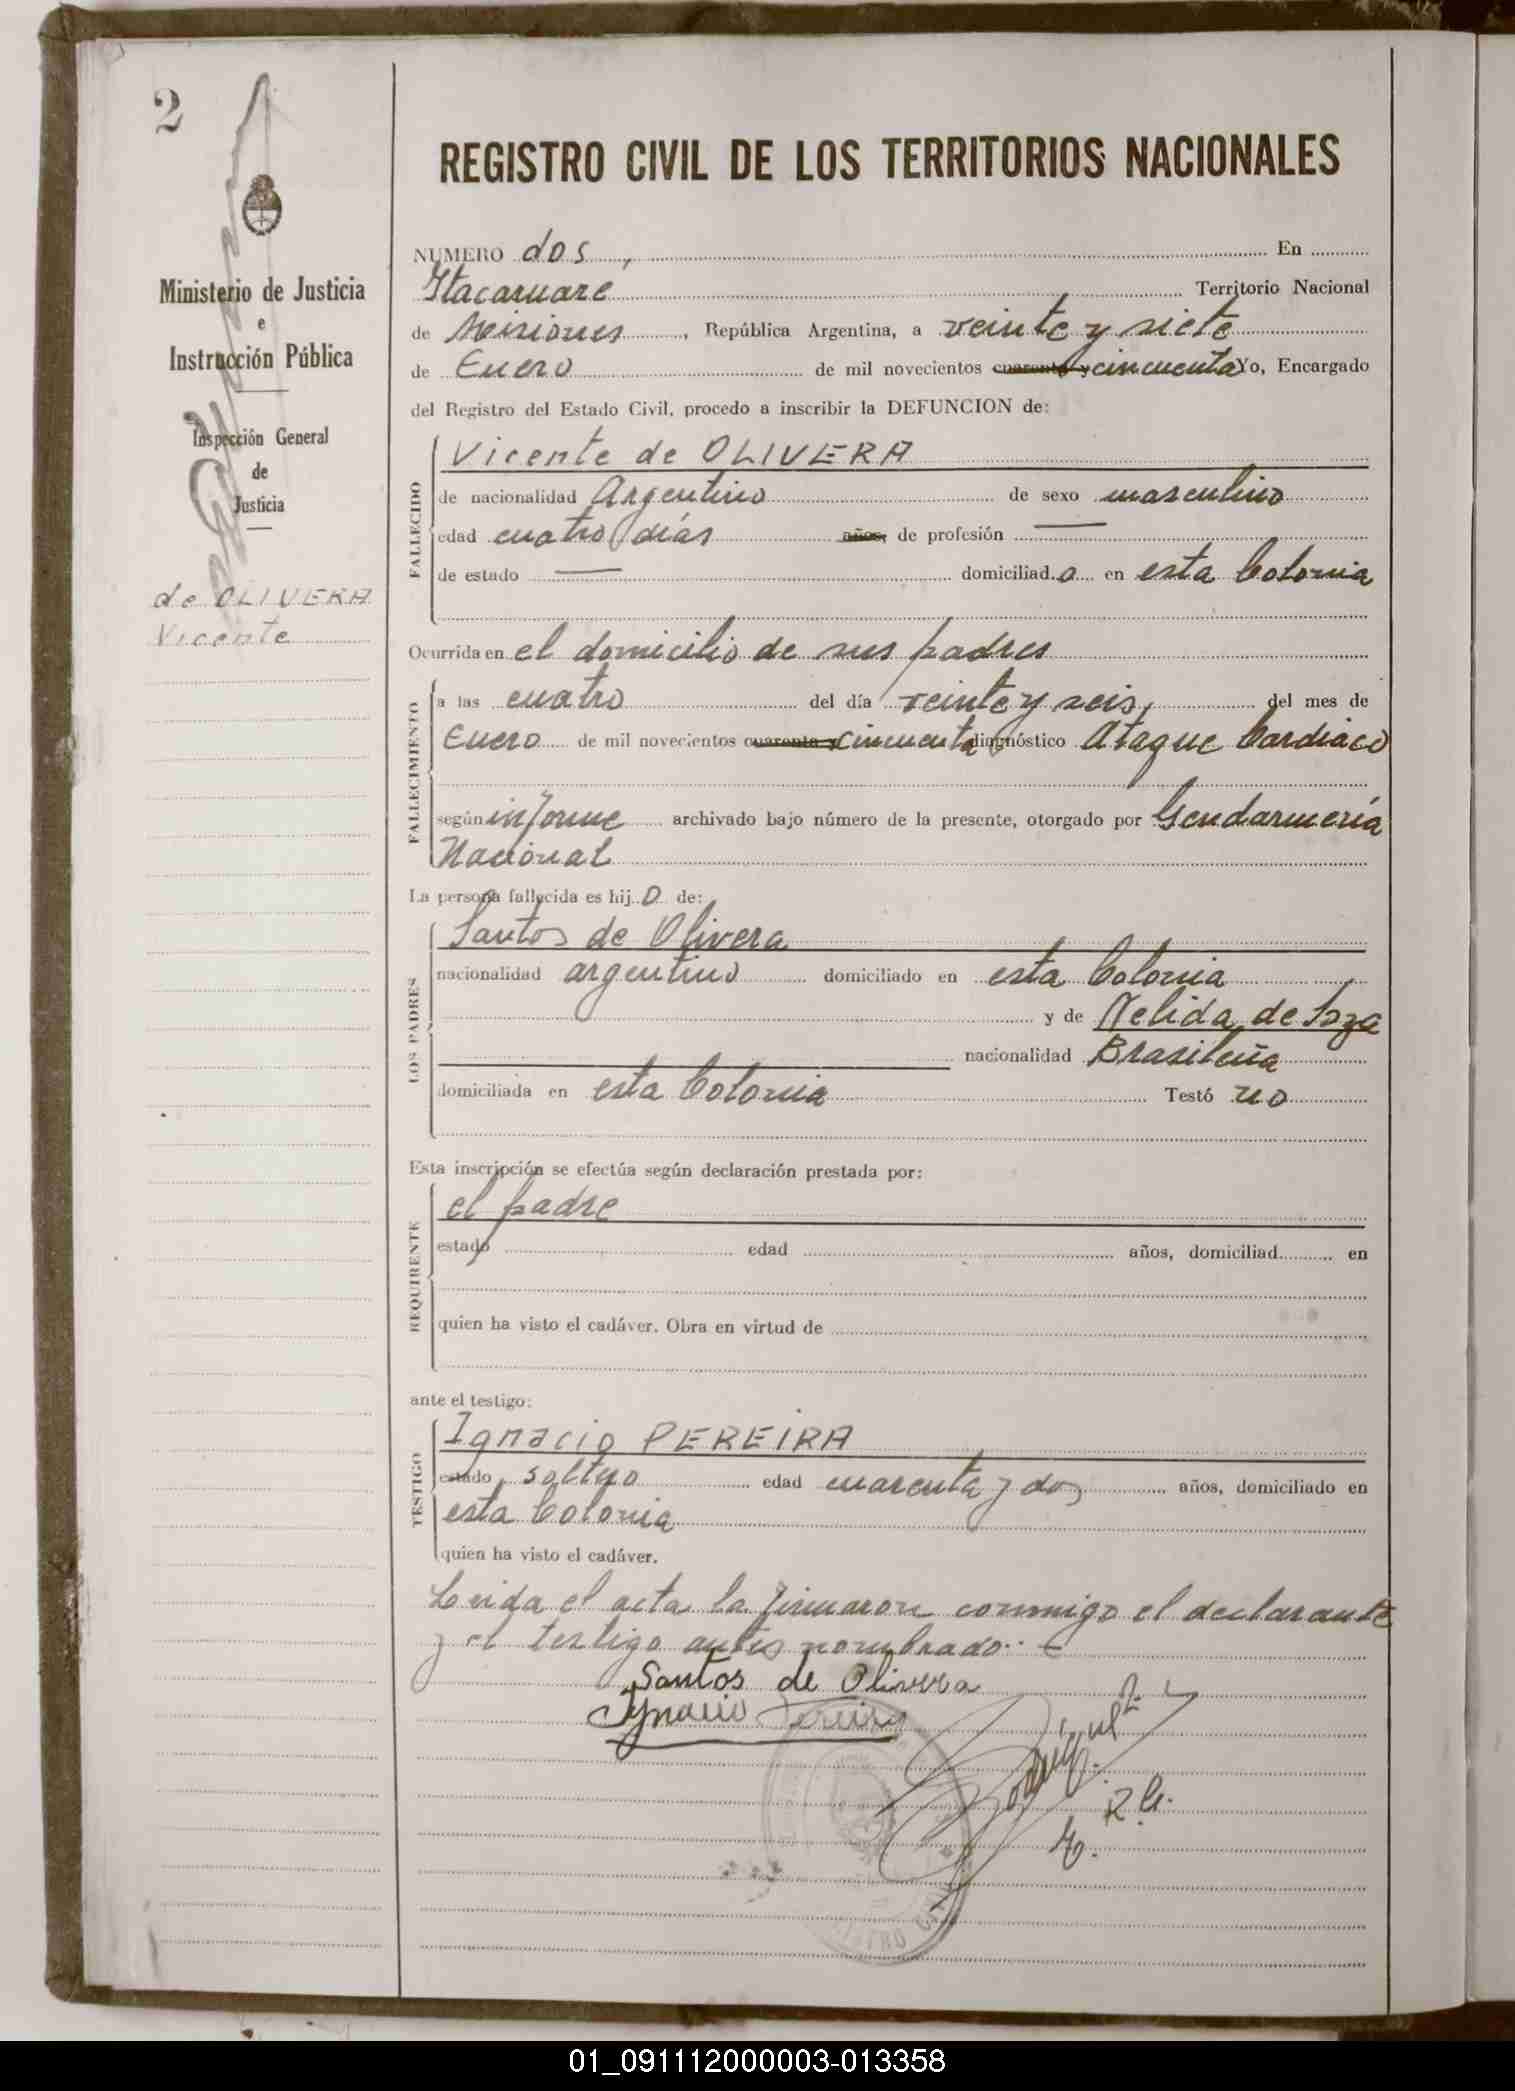 2
REGISTRO CIVIL DE LOS TERRITORIOS NACIONALES
Ministerio de Justicia
e
Instrucción Pública
Inspección General
de
Justicia
de OLIVERA
Vicente
NUMERO dos, En
Itacaruare Territorio Nacional
de Misiones, República Argentina, a veinte y siete
de Enero de mil novecientos cuarenta y cincuenta Yo, Encargado
del Registro del Estado Civil, procedo a inscribir la DEFUNCION de:
FALLECIDO
Vicente de OLIVERA
de nacionalidad Argentino de sexo masculino
edad cuatro días años, de profesión —
de estado — domiciliad o en esta Colonia
Ocurrida en el domicilio de sus padres
FALLECIMIENTO
a las cuatro del día veinte y seis, del mes de
Enero de mil novecientos cuarenta y cincuenta diagnóstico Ataque Cardiaco
según informe archivado bajo número de la presente, otorgado por Gendarmería
Nacional
La persona fallecida es hij o de:
LOS PADRES
Santos de Olivera
nacionalidad argentino domiciliado en esta Colonia
y de Nelida de Soza
nacionalidad Brasileña
domiciliada en esta Colonia Testó no
Esta inscripción se efectúa según declaración prestada por:
REQUIRENTE
el padre
estado edad años, domiciliad en
quien ha visto el cadáver. Obra en virtud de
ante el testigo:
TESTIGO
Ignacio PEREIRA
estado soltero edad cuarenta y dos años, domiciliado en
esta Colonia
quien ha visto el cadáver.
Leida el acta la firmaron conmigo el declarante
y el testigo antes nombrado.. —
Santos de Olivera
Ignacio Pereira
01_091112000003-013358